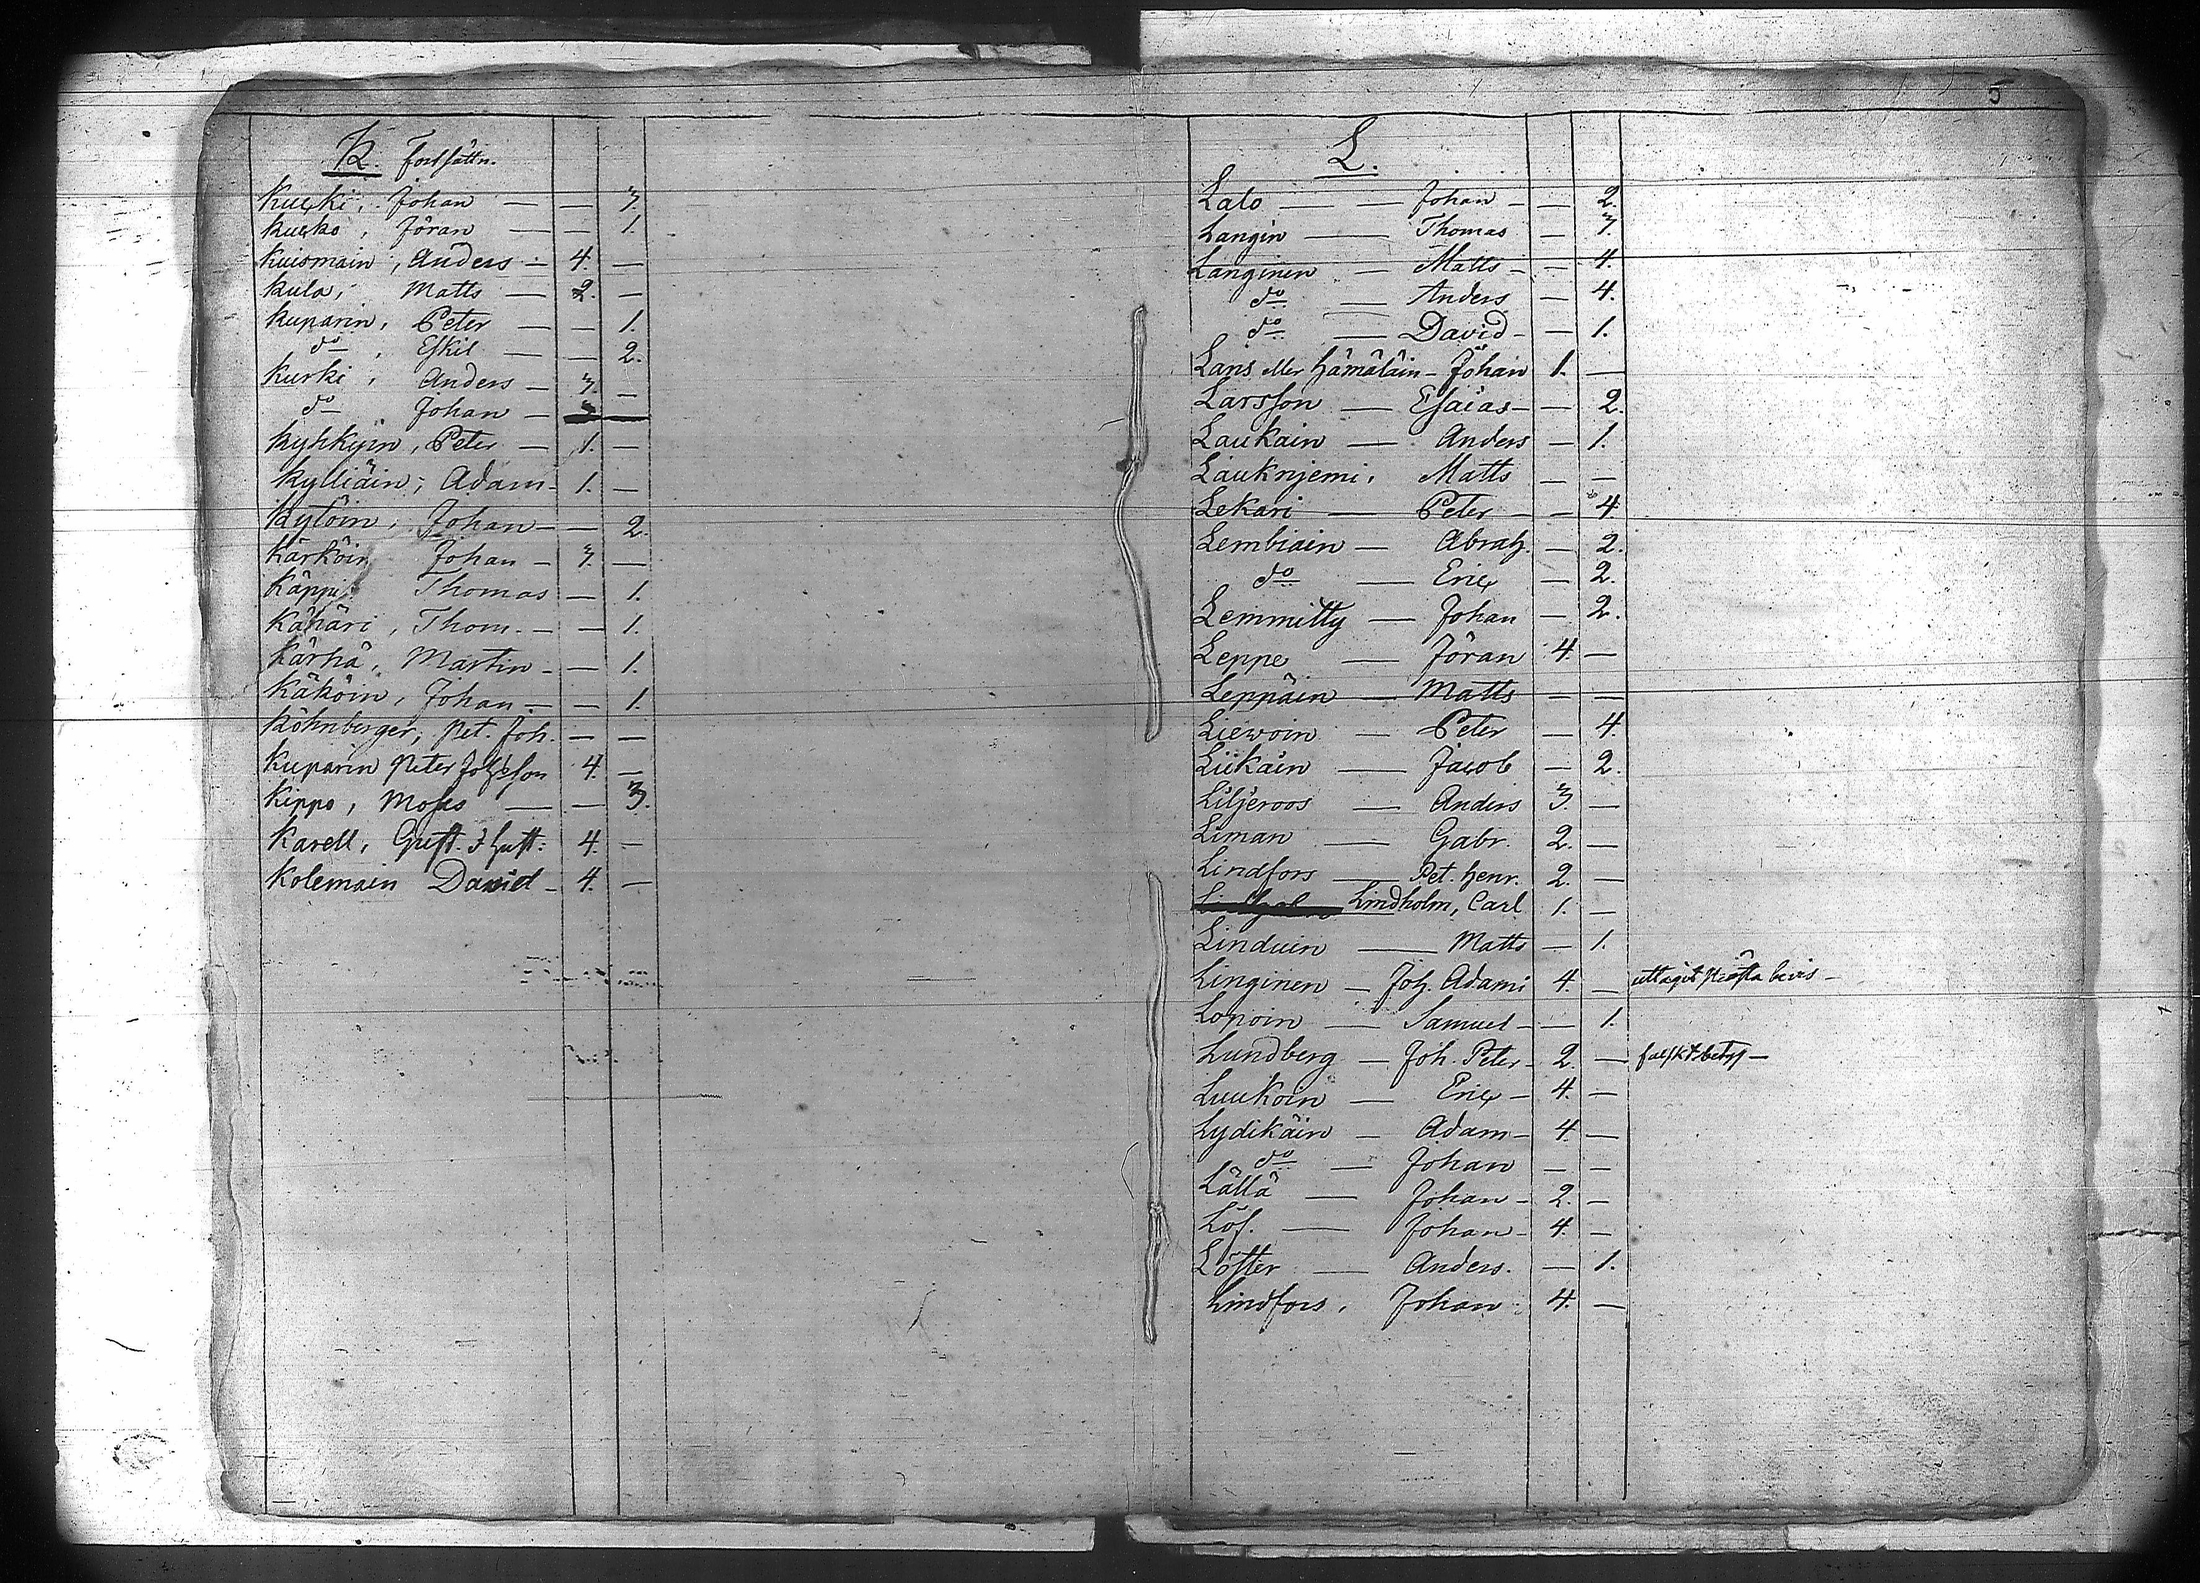 K. Fortsättn.
Kucki, Johan — — 3.
Kucko, Jöran — — 1.
Kuismain, Anders — 4. —
Kula, Matts — 2. —
Kuparin, Peter — — 1.
do , Eskil — — 2.
Kurki, Anders — 3. —
do Johan —
Kyhkyin, Peter — 1. —
Kylliäin, Adam — 1. —
Kytöin, Johan — — 2.
Kärköin Johan — 3. —
Käppi Thomas — 1.
Kähäri, Thom. — — 1.
Kärhä, Martin — — 1.
Käköin, Johan — — 1.
Köhnberger, Pet. Joh. — —
Kuparin Peter Joh:sson 4. —
Kippo, Moses — — 3.
Karell, Gust. J Gust: 4. —
Kolemain David — 4. —
5
L.
Lalo — — Johan — — 2.
Langin — Thomas — 3.
Langinen — Matts — — 4.
do — Anders — 4.
do — David — — 1.
Lans eller Hämäläin — Johan 1. —
Larsson — Esaias — — 2.
Laukain — Anders — 1.
Lauknjemi, Matts — —
Lekari — Peter — — 4
Lembiain — Abrah. — 2.
do — Eric — 2.
Lemmitty — Johan — 2.
Leppe — Jöran 4. —
Leppäin — Matts — —
Liewoin — Peter — 4.
Liikain — Jacob — 2.
Liljeroos — Anders 3. —
Liman — Gabr. 2. —
Lindfors — Pet. Henr. 2. —
Lindholm, Carl 1. —
Linduin — Matts — 1.
Linginen — Joh. Adami 4. — uttagit bevis —
Lopoin — Samuel — — 1.
Lundberg — Joh. Peter — 2. — falskt betyg —
Luukoin — Eric — 4. —
Lydikäin — Adam — 4 —
do — Johan — —
Lällä — Johan — 2. —
Löf. — Johan — 4. —
Löfter — Anders. — 1.
Lindfors, Johan 4. —